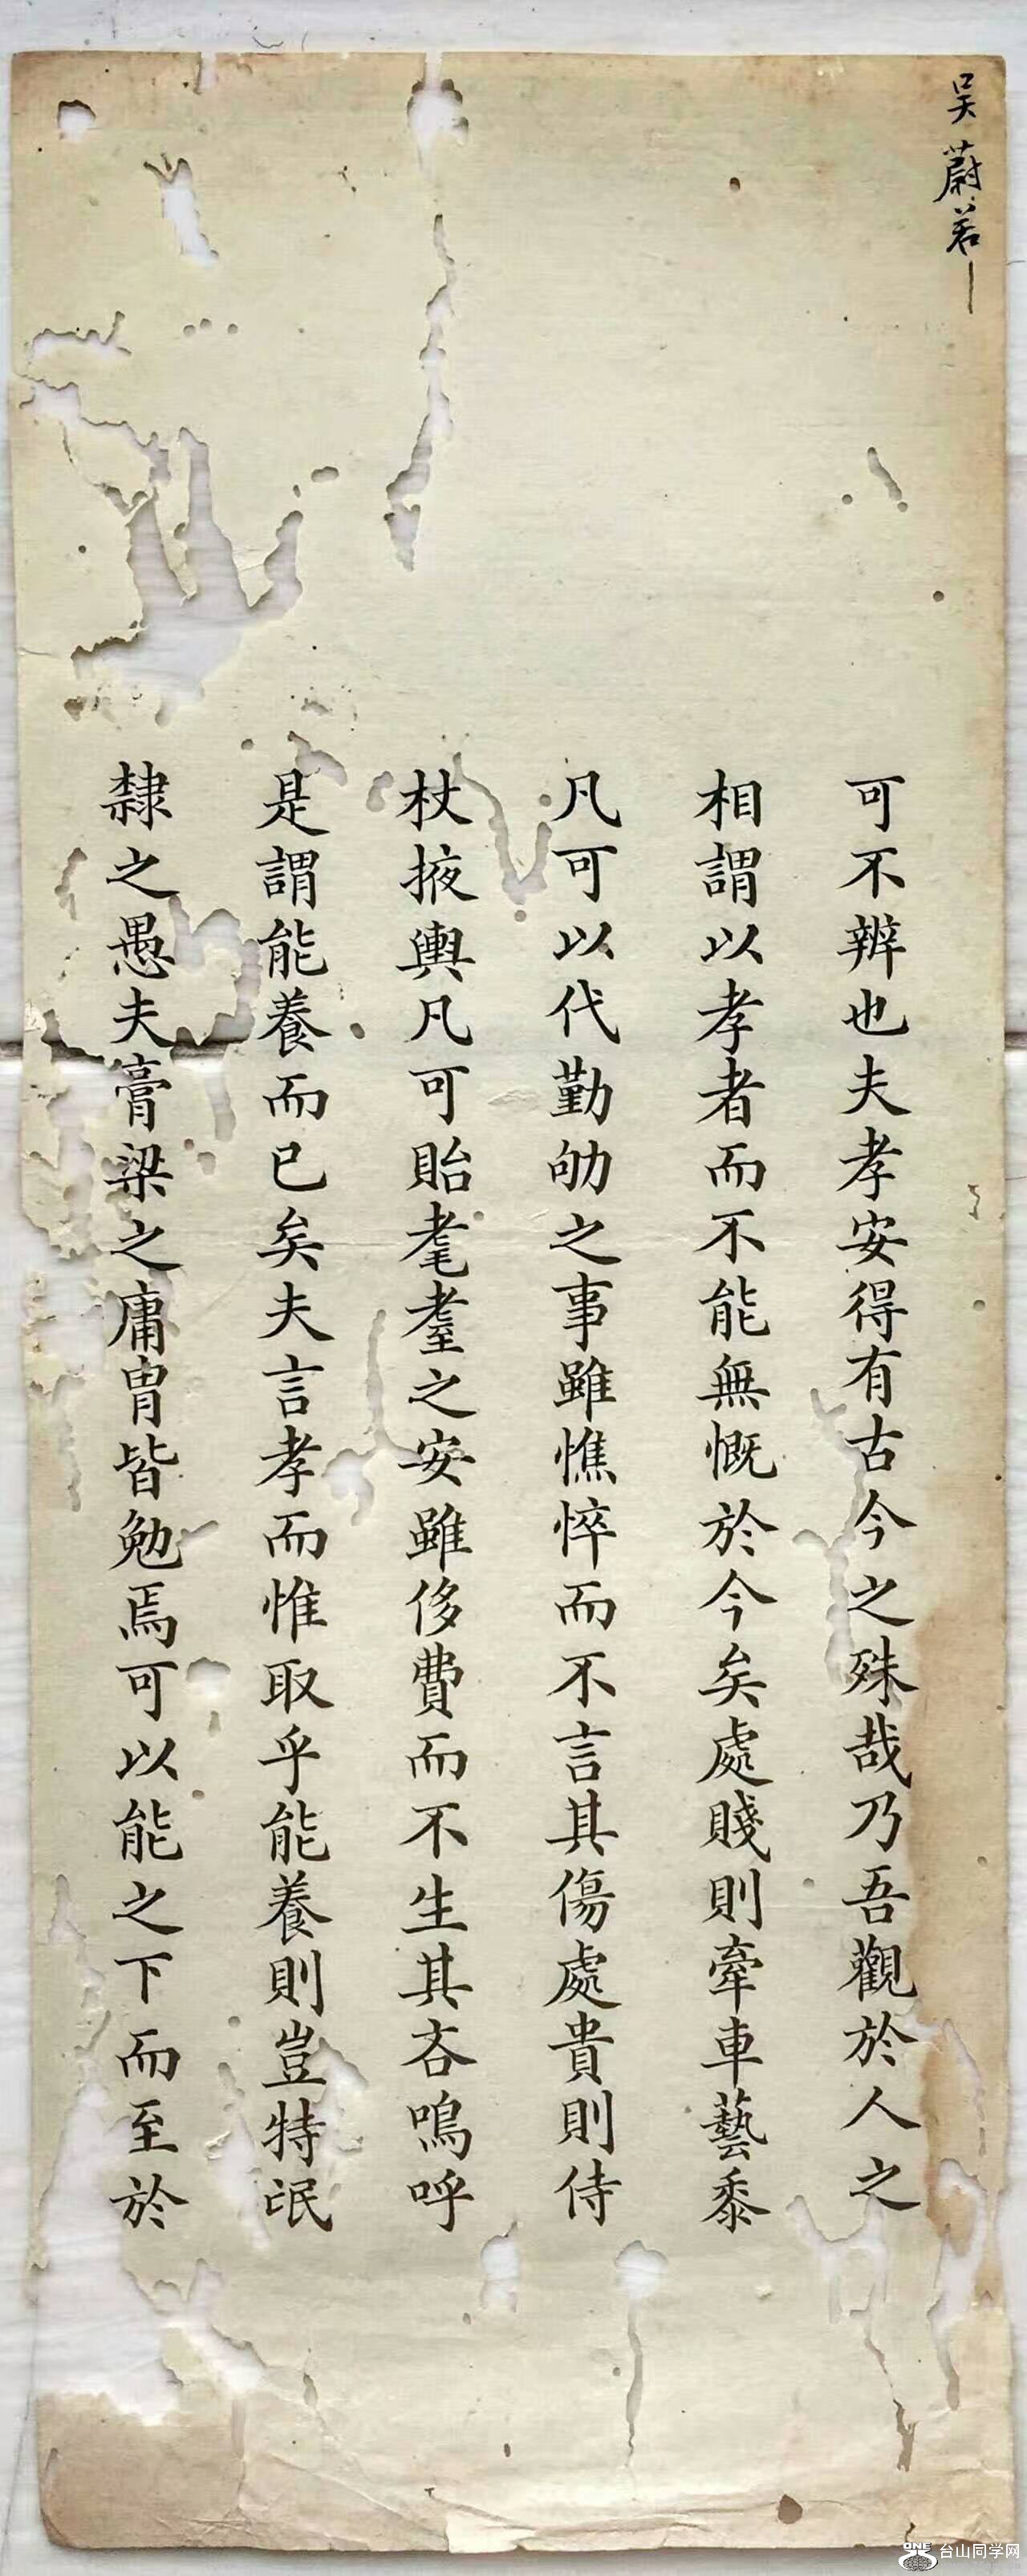 吴蔚若
可不辨也夫孝安得有古今之殊哉乃吾觀於人之
相謂以孝者而不能無慨於今矣處賤則牽車藝黍
凡可以代勤劬之事雖憔悴而不言其傷處貴則侍
杖掖輿凡可貽耄耋之安雖侈費而不生其吝嗚呼
是謂能養而已矣夫言孝而惟取乎能養則豈特氓
隸之愚夫膏粱之庸冑皆勉焉可以能之下而至於
ONE 台山同学网